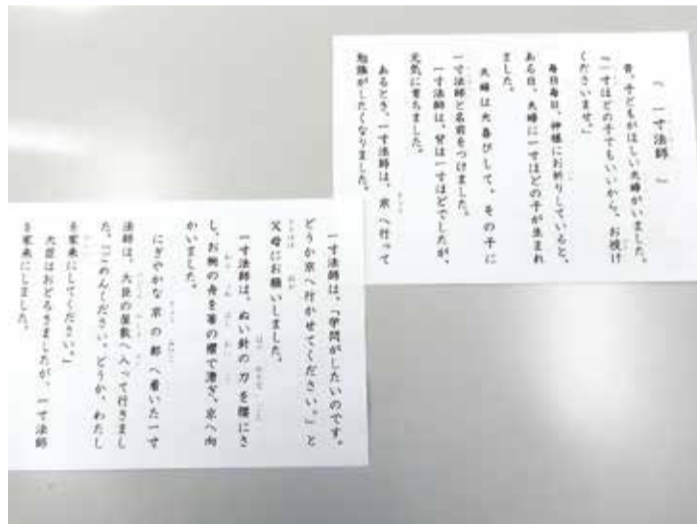 〜 一寸法師 〜
昔、子どもがほしい夫婦がいました。
「一寸ほどの子でもいいから、お授け
くださいませ。」
毎日毎日、神様にお祈りしていると、
ある日、夫婦に一寸ほどの子が生まれ
ました。
夫婦は大喜びして、その子に
一寸法師と名前をつけました。
一寸法師は、背は一寸ほどでしたが、
元気に育ちました。
あるとき、一寸法師は、京へ行って
勉強がしたくなりました。
一寸法師は、「学問がしたいのです。
どうか京へ行かせてください。」と
父母にお願いしました。
一寸法師は、ぬい針の刀を腰にさ
し、お椀の舟を箸の櫂で漕ぎ、京へ向
かいました。
にぎやかな京の都へ着いた一寸
法師は、大臣の屋敷へ入って行きまし
た。「ごめんください。どうか、わたし
を家来にしてください。」
大臣はおどろきましたが、一寸法師
を家来にしました。